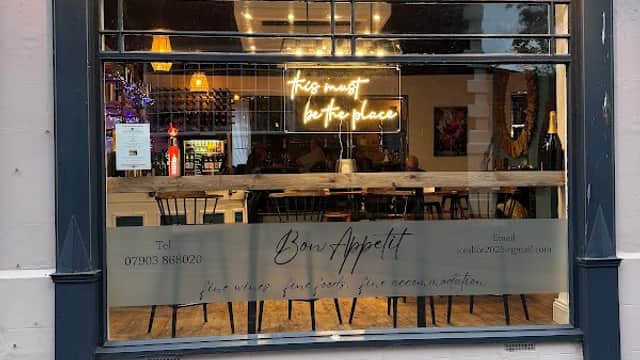 this must
be the place
Bon Appetit
Tel
07903 868020
Email
fine wines. fine foods. fine accommodation